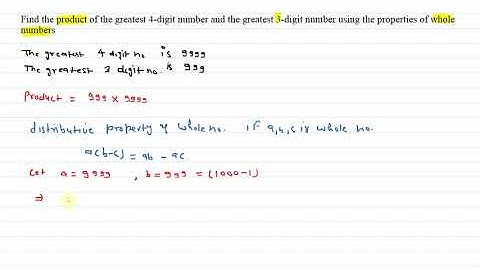 Find the product of the greatest 4-digit number and the greatest 3-digit number using the properties of whole
numbers
The greatest 4 digit no. is 9999
The greatest 3 digit no. is 999
Product = 999 x 9999
distributive property of whole no. if a,b,c is whole no.
a(b-c) = ab - ac
Let a = 9999 , b = 999 = (1000-1)
⇒ =